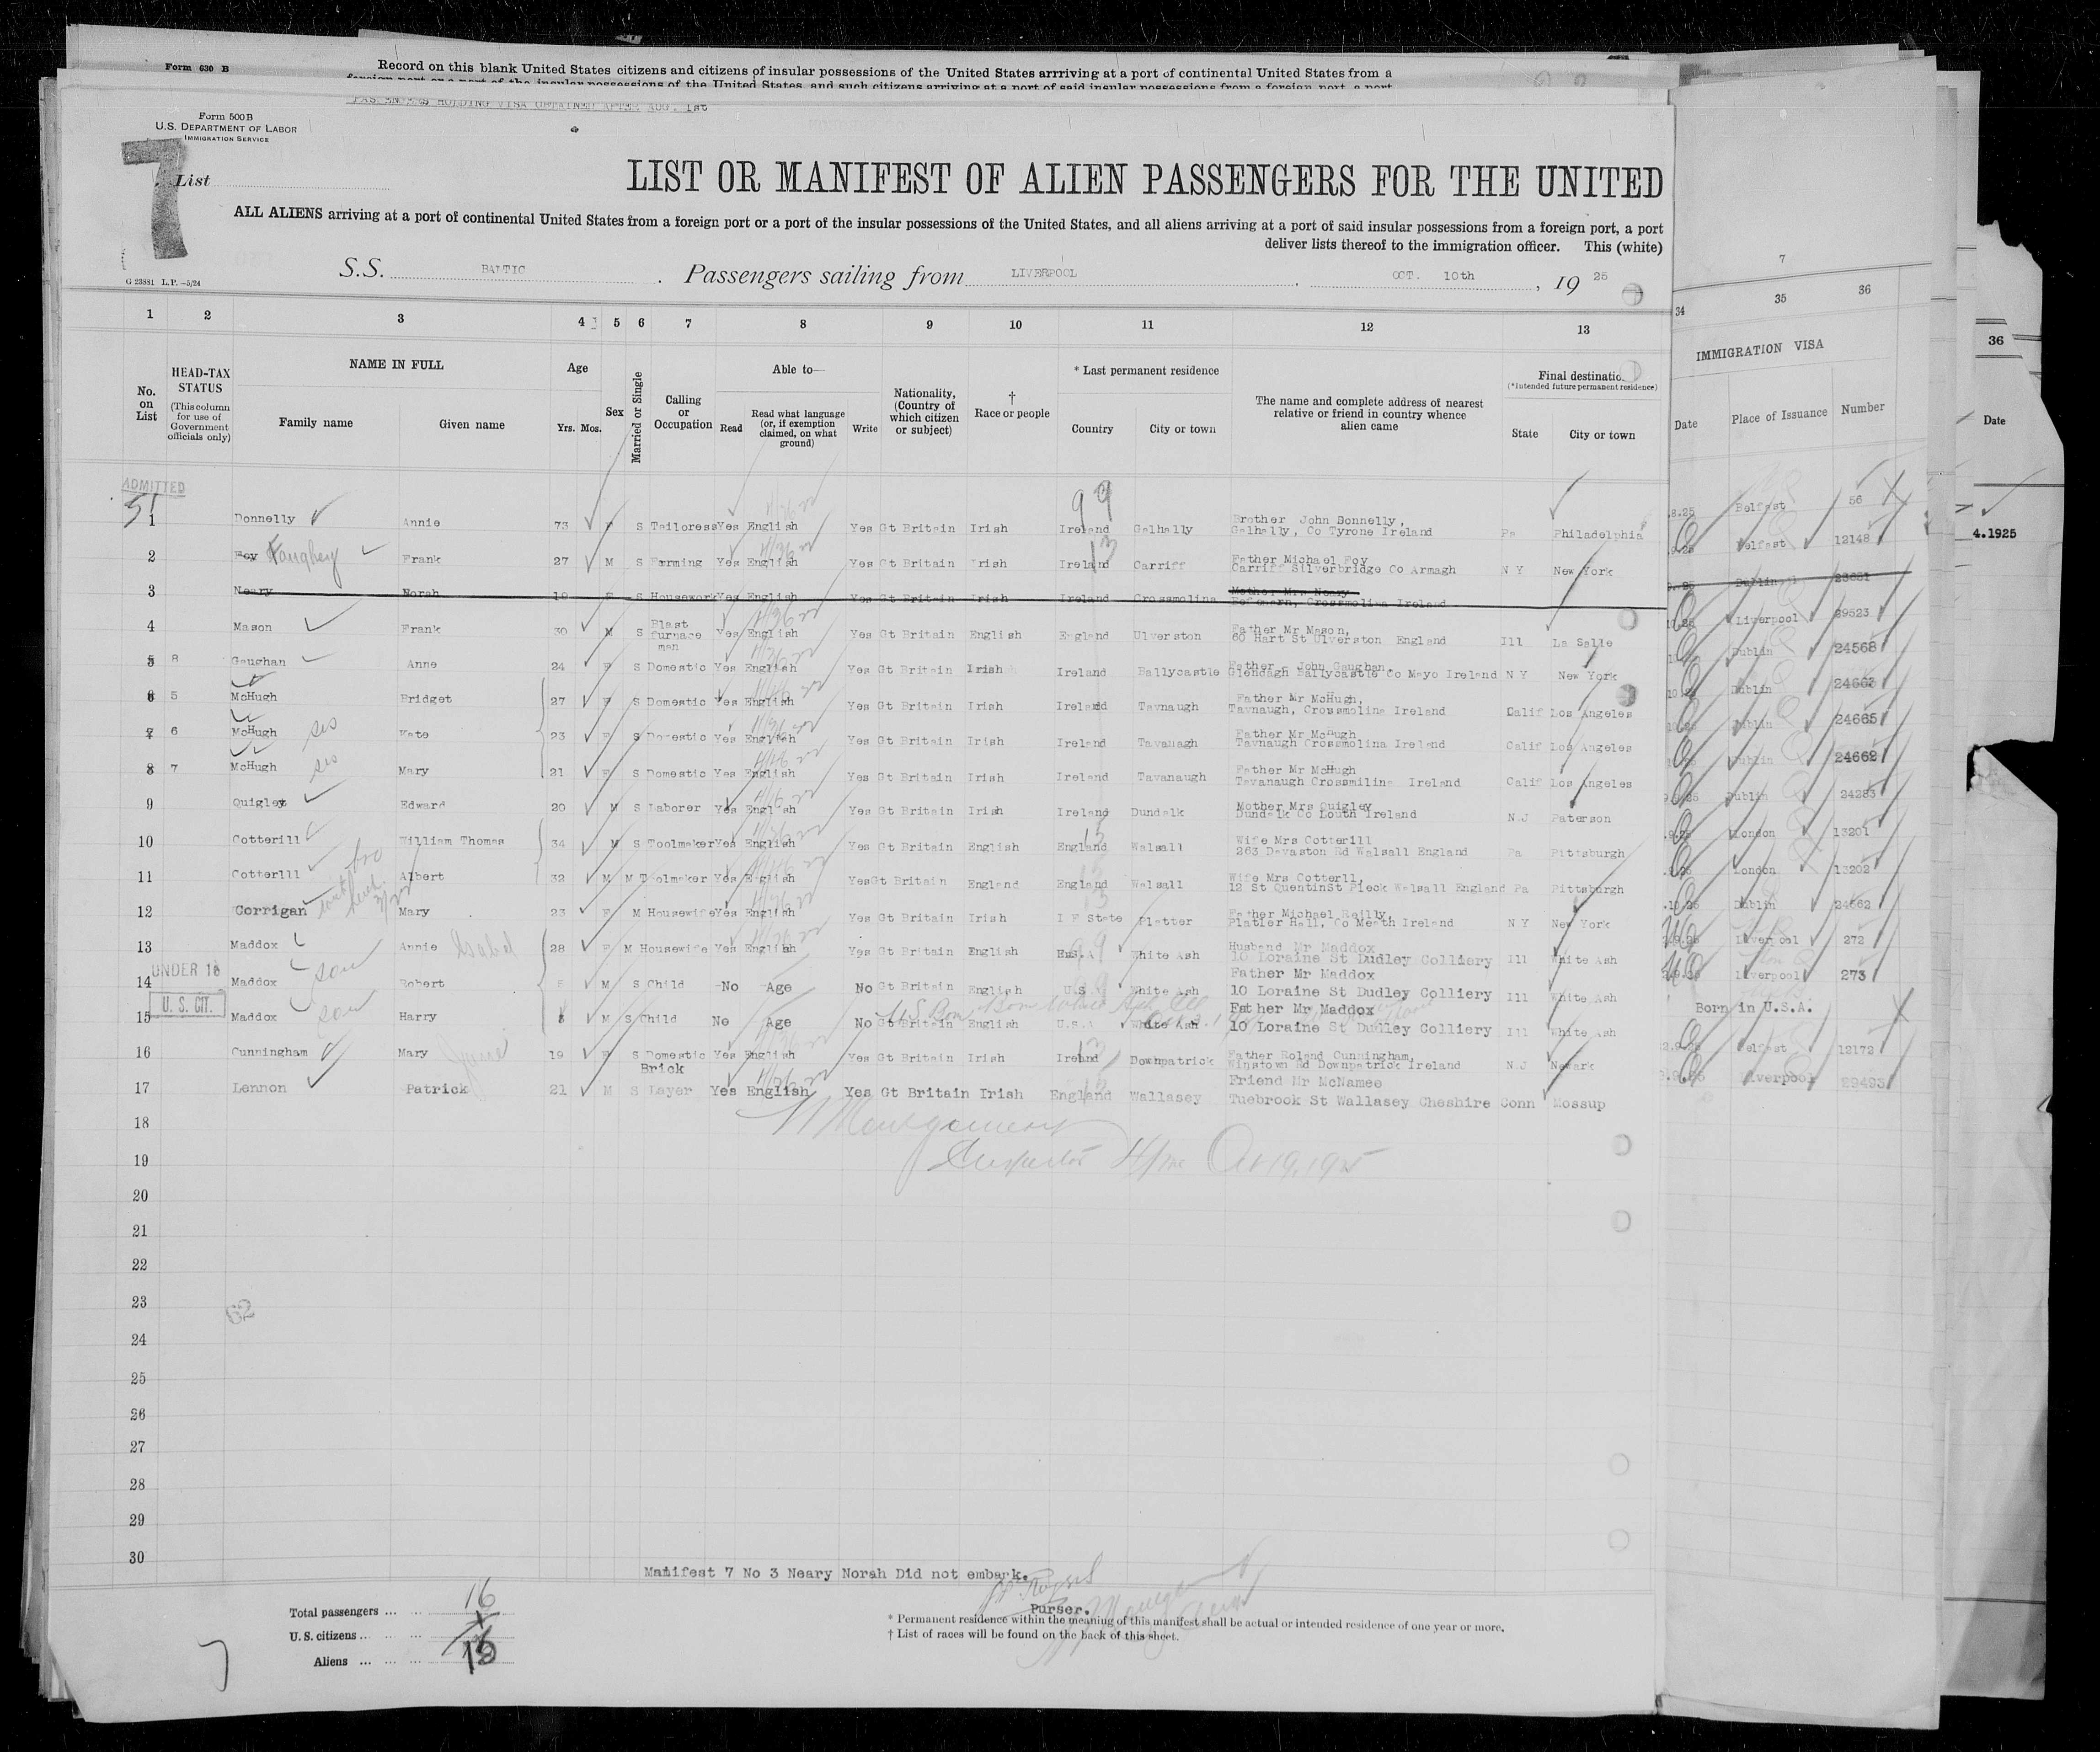 Form 630 B
Record on this blank United States citizens and citizens of insular possessions of the United States arriving at a port of continental United States from a
PASSENGERS HOLDING VISA OBTAINED AFTER AUG. 1st
Form 500 B
U.S. DEPARTMENT OF LABOR
IMMIGRATION SERVICE
7
List
LIST OR MANIFEST OF ALIEN PASSENGERS FOR THE UNITED
ALL ALIENS arriving at a port of continental United States from a foreign port or a port of the insular possessions of the United States, and all aliens arriving at a port of said insular possessions from a foreign port, a port
deliver lists thereof to the immigration officer. This (white)
G 23881 L.P.—5/24
S.S. BALTIC . Passengers sailing from LIVERPOOL . OCT. 10th , 19 25
7
1 2 3 4 5 6 7 8 9 10 11 12 13 34 35 36
No. on List
HEAD-TAX STATUS (This column for use of Government officials only)
NAME IN FULL Family name Given name
Age Yrs. Mos.
Sex
Married or Single
Calling or Occupation
Able to— Read Read what language (or, if exemption claimed, on what ground) Write
Nationality, (Country of which citizen or subject)
† Race or people
* Last permanent residence Country City or town
The name and complete address of nearest relative or friend in country whence alien came
Final destination (*Intended future permanent residence) State City or town
IMMIGRATION VISA Date Place of Issuance Number
36 Date
4.1925
ADMITTED
1 Donnelly Annie 73 F S Tailoress Yes English Yes Gt Britain Irish Ireland Galhally Brother John Donnelly, Galhally, Co Tyrone Ireland Pa Philadelphia .8.25 Belfast 56
2 Foy Frank 27 M S Farming Yes English Yes Gt Britain Irish Ireland Carriff Father Michael Foy Carriff Silverbridge Co Armagh N Y New York 9.25 Belfast 12148
3 Neary Norah 19 F S Housework Yes English Yes Gt Britain Irish Ireland Crossmolina Mother Mrs Neary Crossmolina Ireland Dublin
4 Mason Frank 30 M S Blast furnace man Yes English Yes Gt Britain English England Ulverston Father Mr Mason, 60 Hart St Ulverston England Ill La Salle Liverpool 29523
5 8 Gaughan Anne 24 F S Domestic Yes English Yes Gt Britain Irish Ireland Ballycastle Father John Gaughan, Glendagh Ballycastle Co Mayo Ireland N Y New York Dublin 24568
6 5 McHugh Bridget 27 F S Domestic Yes English Yes Gt Britain Irish Ireland Tavnaugh Father Mr McHugh, Tavnaugh, Crossmolina Ireland Calif Los Angeles Dublin
7 6 McHugh sis Kate 23 F S Domestic Yes English Yes Gt Britain Irish Ireland Tavanagh Father Mr McHugh Tavnaugh Crossmolina Ireland Calif Los Angeles Dublin 24665
8 7 McHugh sis Mary 21 F S Domestic Yes English Yes Gt Britain Irish Ireland Tavanaugh Father Mr McHugh Tavanaugh Crossmilina Ireland Calif Los Angeles Dublin 24662
9 Quigley Edward 20 M S Laborer Yes English Yes Gt Britain Irish Ireland Dundalk Mother Mrs Quigley Dundalk Co Louth Ireland N.J Paterson Dublin 24283
10 Cotterill William Thomas 34 M S Toolmaker Yes English Yes Gt Britain English England Walsall Wife Mrs Cotterill 263 Davaston Rd Walsall England Pa Pittsburgh London 13201
11 Cotterlll bro Albert 32 M M Toolmaker Yes English Yes Gt Britain England England Walsall Wife Mrs Cotterll, 12 St QuentinSt Pleck Walsall England Pa Pittsburgh London 13202
12 Corrigan Mary 23 F M Housewife Yes English Yes Gt Britain Irish I F State Platter Father Michael Reilly Platter Hall, Co Meath Ireland N Y New York Dublin 24662
13 Maddox Annie Isabel 28 F M Housewife Yes English Yes Gt Britain English U.S.A White Ash Husband Mr Maddox 10 Loraine St Dudley Colliery Ill White Ash Liverpool 272
UNDER 16
14 Maddox son Robert 5 M S Child No Age No Gt Britain English U.S White Ash Father Mr Maddox 10 Loraine St Dudley Colliery Ill White Ash Liverpool 273
U. S. CIT.
15 Maddox son Harry M S Child No Age No Gt Britain English U.S.A White Ash Father Mr Maddox 10 Loraine St Dudley Colliery Ill White Ash Born in U.S.A.
16 Cunningham Mary Jane 19 F S Domestic Yes English Yes Gt Britain Irish Ireland Downpatrick Father Roland Cunningham, Winstown Rd Downpatrick Ireland N.J Newark Belfast 12172
17 Lennon Patrick 21 M S Brick Layer Yes English Yes Gt Britain Irish England Wallasey Friend Mr McNamee Tuebrook St Wallasey Cheshire Conn Mossup Liverpool 29493
18
Inspector Oct 19, 1925
19
20
21
22
23
62
24
25
26
27
28
29
30
Manifest 7 No 3 Neary Norah Did not embark.
Purser.
Total passengers ... 16
U.S. citizens ...
Aliens ... 15
7
* Permanent residence within the meaning of this manifest shall be actual or intended residence of one year or more.
† List of races will be found on the back of this sheet.